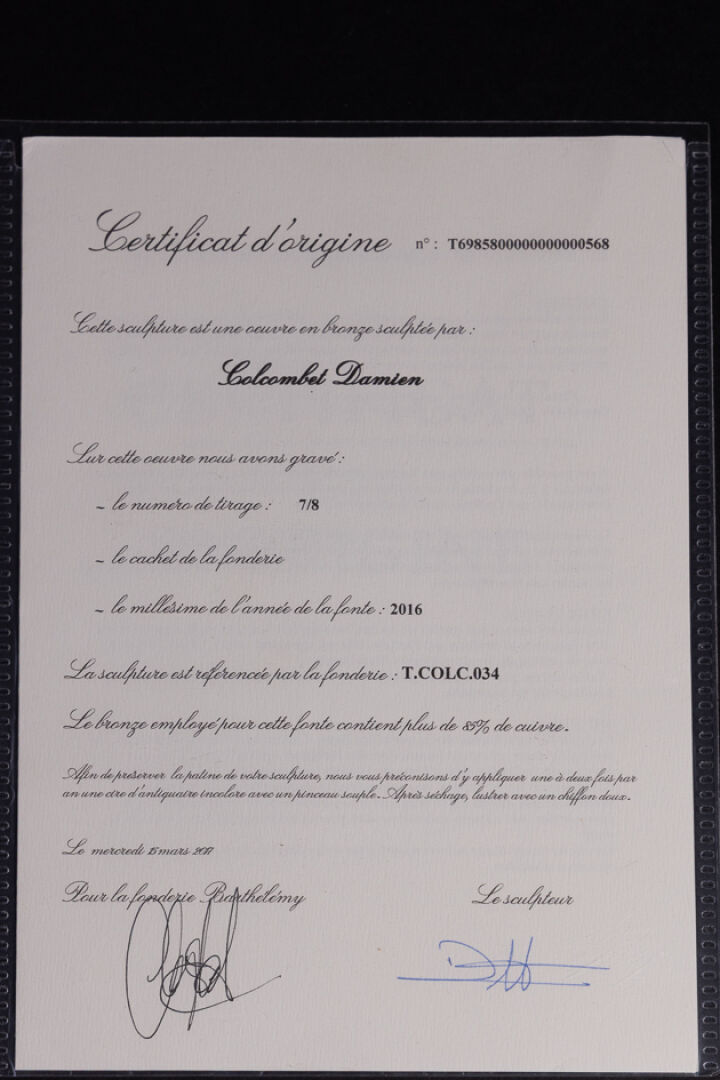 Certificat d'origine n° : T6985800000000000568
Cette sculpture est une oeuvre en bronze sculptée par :
Colcombet Damien
Sur cette oeuvre nous avons gravé :
- le numero de tirage : 7/8
- le cachet de la fonderie
- le millésime de l'année de la fonte : 2016
La sculpture est référencée par la fonderie : T.COLC.034
Le bronze employé pour cette fonte contient plus de 85% de cuivre.
Afin de préserver la patine de votre sculpture, nous vous préconisons d'y appliquer une à deux fois par
an une cire d'antiquaire incolore avec un pinceau souple. Après séchage, lustrer avec un chiffon doux.
Le mercredi 15 mars 2017
Pour la fonderie Barthélémy Le sculpteur